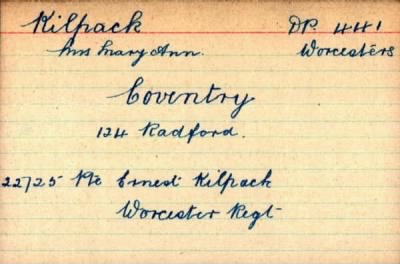 Kilpack DP. 441
Mrs Mary Ann. Worcesters
Coventry
124 Radford.
22725 Pte Ernest Kilpack
Worcester Regt